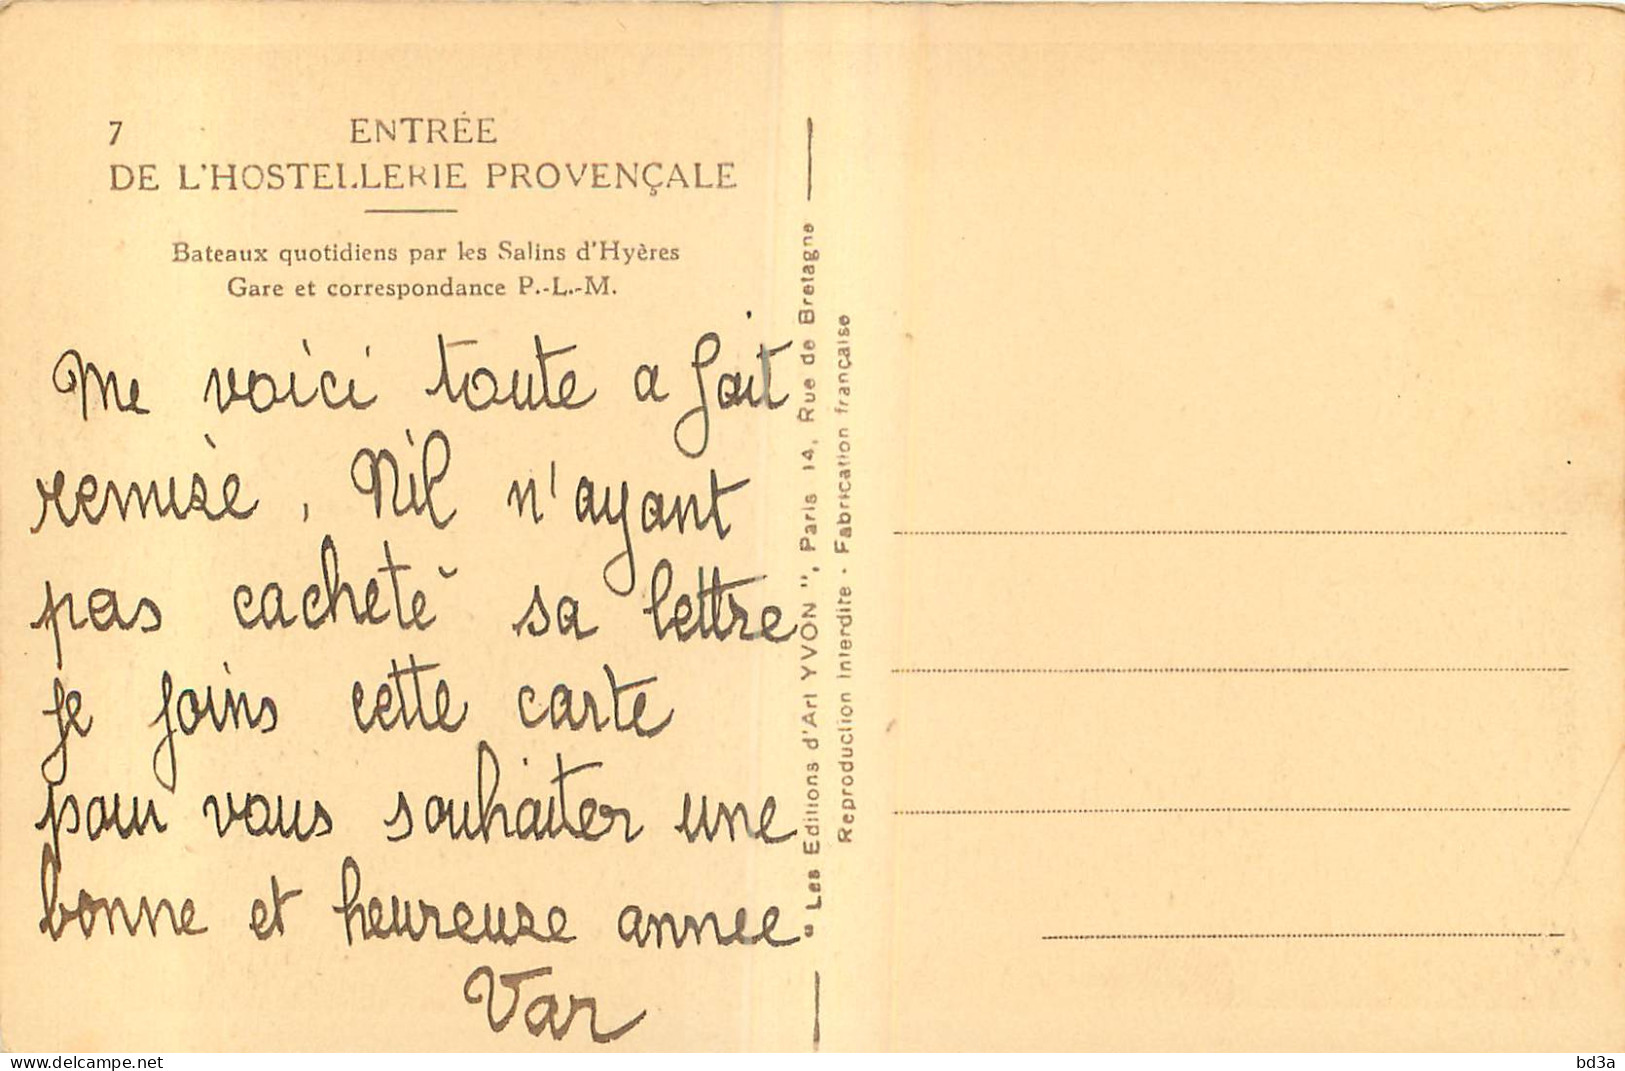 7 ENTRÉE
DE L'HOSTELLERIE PROVENÇALE
Bateaux quotidiens par les Salins d'Hyères
Gare et correspondance P.-L.-M.
Me voici toute a fait
remise, Nil n'ayant
pas cacheté sa lettre
je joins cette carte
pour vous souhaiter une
bonne et heureuse annee.
Var
"Les Editions d'Art YVON", Paris 14, Rue de Bretagne
Reproduction Interdite - Fabrication française
www.delcampe.net
bd3a